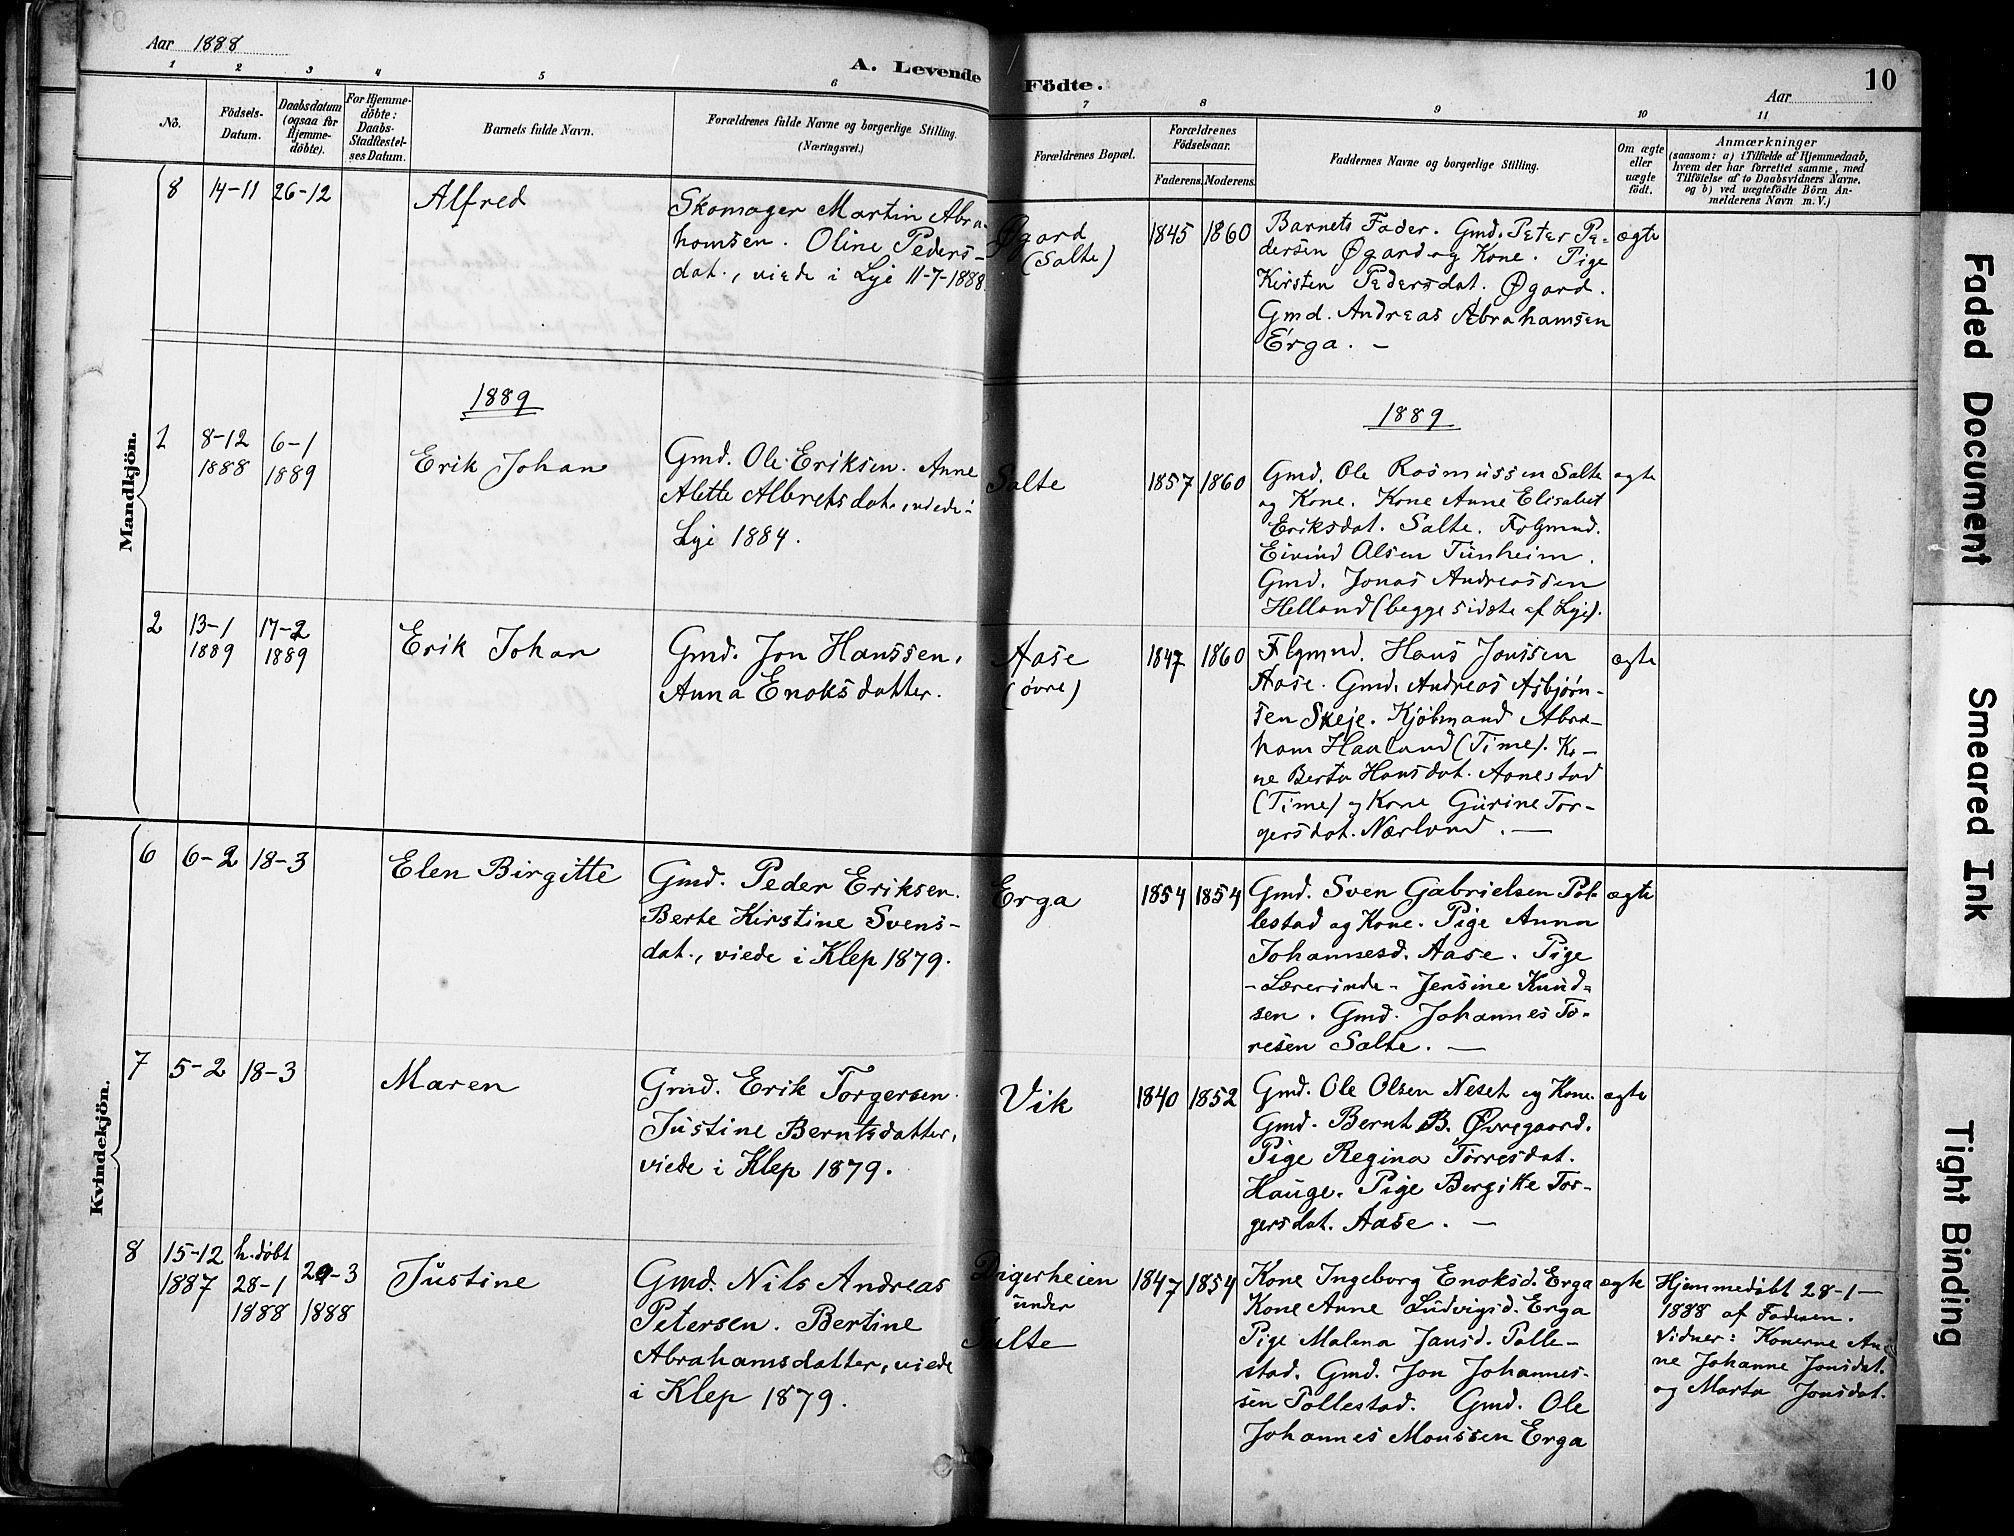 Aar 1888
A. Levende Födte.
10
Aar
1 2 3 4 5 6 7 8 9 10 11
Nö.
Födsels-
Datum.
Daabsdatum
(ogsaa for
Hjemme-
döbte).
For Hjemme-
döbte:
Daabs-
Stadfæstel-
ses Datum.
Barnets fulde Navn.
Forældrenes fulde Navne og borgerlige Stilling.
(Næringsvei.)
Forældrenes Bopæl.
Forældrenes
Födselsaar.
Faderens. Moderens.
Faddernes Navne og borgerlige Stilling.
Om ægte
eller
uægte
födt.
Anmærkninger
(saasom: a) i Tilfælde af Hjemmedaab,
hvem der har forrettet samme, med
Tilföielse af to Daabsvidners Navne.
og b) ved uægtefödte Börn An-
melderens Navn m. V.)
Mandkjön.
8
14-11
26-12
Alfred
Skomager Martin Abra-
hamsen. Oline Peders-
dat., viede i Lye 11-7-1888.
Øgard
(Salte)
1845
1860
Barnets Fader. Gmd. Peter Pe-
dersen Øgard og Kone. Pige
Kirsten Pedersdat. Øgard.
Gmd. Andreas Abrahamsen
Erga. -
ægte
1889
1889
1
8-12
1888
6-1
1889
Erik Johan
Gmd. Ole Eriksen. Anne
Alette Albretsdat., viede i
Lye 1884.
Salte
1857
1860
Gmd. Ole Rasmussen Salte
og Kone. Kone Anne Elisabet
Eriksdat. Salte.
Eivind Olsen Tunheim.
Gmd. Jonas Andreassen
Helland (begge sidste af Lye).
ægte
2
13-1
1889
17-2
1889
Erik Johan
Gmd. Jon Hanssen.
Anna Enoksdatter.
Aase
(øvre)
1847
1860
Hans Jonssen
Aase. Gmd. Andreas Asbjørn-
sen Skeje. Kjøbmand Abra-
ham Haaland (Time). Ko-
ne Berta Hansdat. Aanestad
(Time) og Kone Gurine Tor-
gersdat. Nærland. -
ægte
Kvindekjön.
6
6-2
18-3
Elen Birgitte
Gmd. Peder Eriksen.
Berte Kirstine Svens-
dat., viede i Klep 1879.
Erga
1854
1854
Gmd. Sven Gabrielsen Pol-
lestad og Kone. Pige Anna
Johannesd. Aase. Pige
- Lærerinde - Jensine Knud-
sen. Gmd. Johannes To-
resen Salte. -
ægte
7
5-2
18-3
Maren
Gmd. Erik Torgersen.
Justine Berntsdatter,
viede i Klep 1879.
Vik
1840
1852
Gmd. Ole Olsen Neset og Kone.
Gmd. Bernt B. Øvregaard.
Pige Regina Torresdat.
Hauge. Pige Bergitte Tor-
gersdat. Aase. -
ægte
8
15-12
1887
h. døbt
28-1
1888
29-3
1888
Justine
Gmd. Nils Andreas
Petersen. Bertine
Abrahamsdatter, viede
i Klep 1879.
Digerheien
under
Salte
1847
1854
Kone Ingeborg Enoksd. Erga
Kone Anne Ludvigsd. Erga
Pige Malena Jansd. Polle-
stad. Gmd. Jon Johannes-
sen Pollestad. Gmd. Ole
Johannes Monssen Erga
ægte
Hjemmedøbt 28-1-
1888 af Faderen.
Vidner: Konerne An-
ne Johanne Jonsdat.
og Marta Jonsdat.
Faded Document
Smeared Ink
Tight Binding